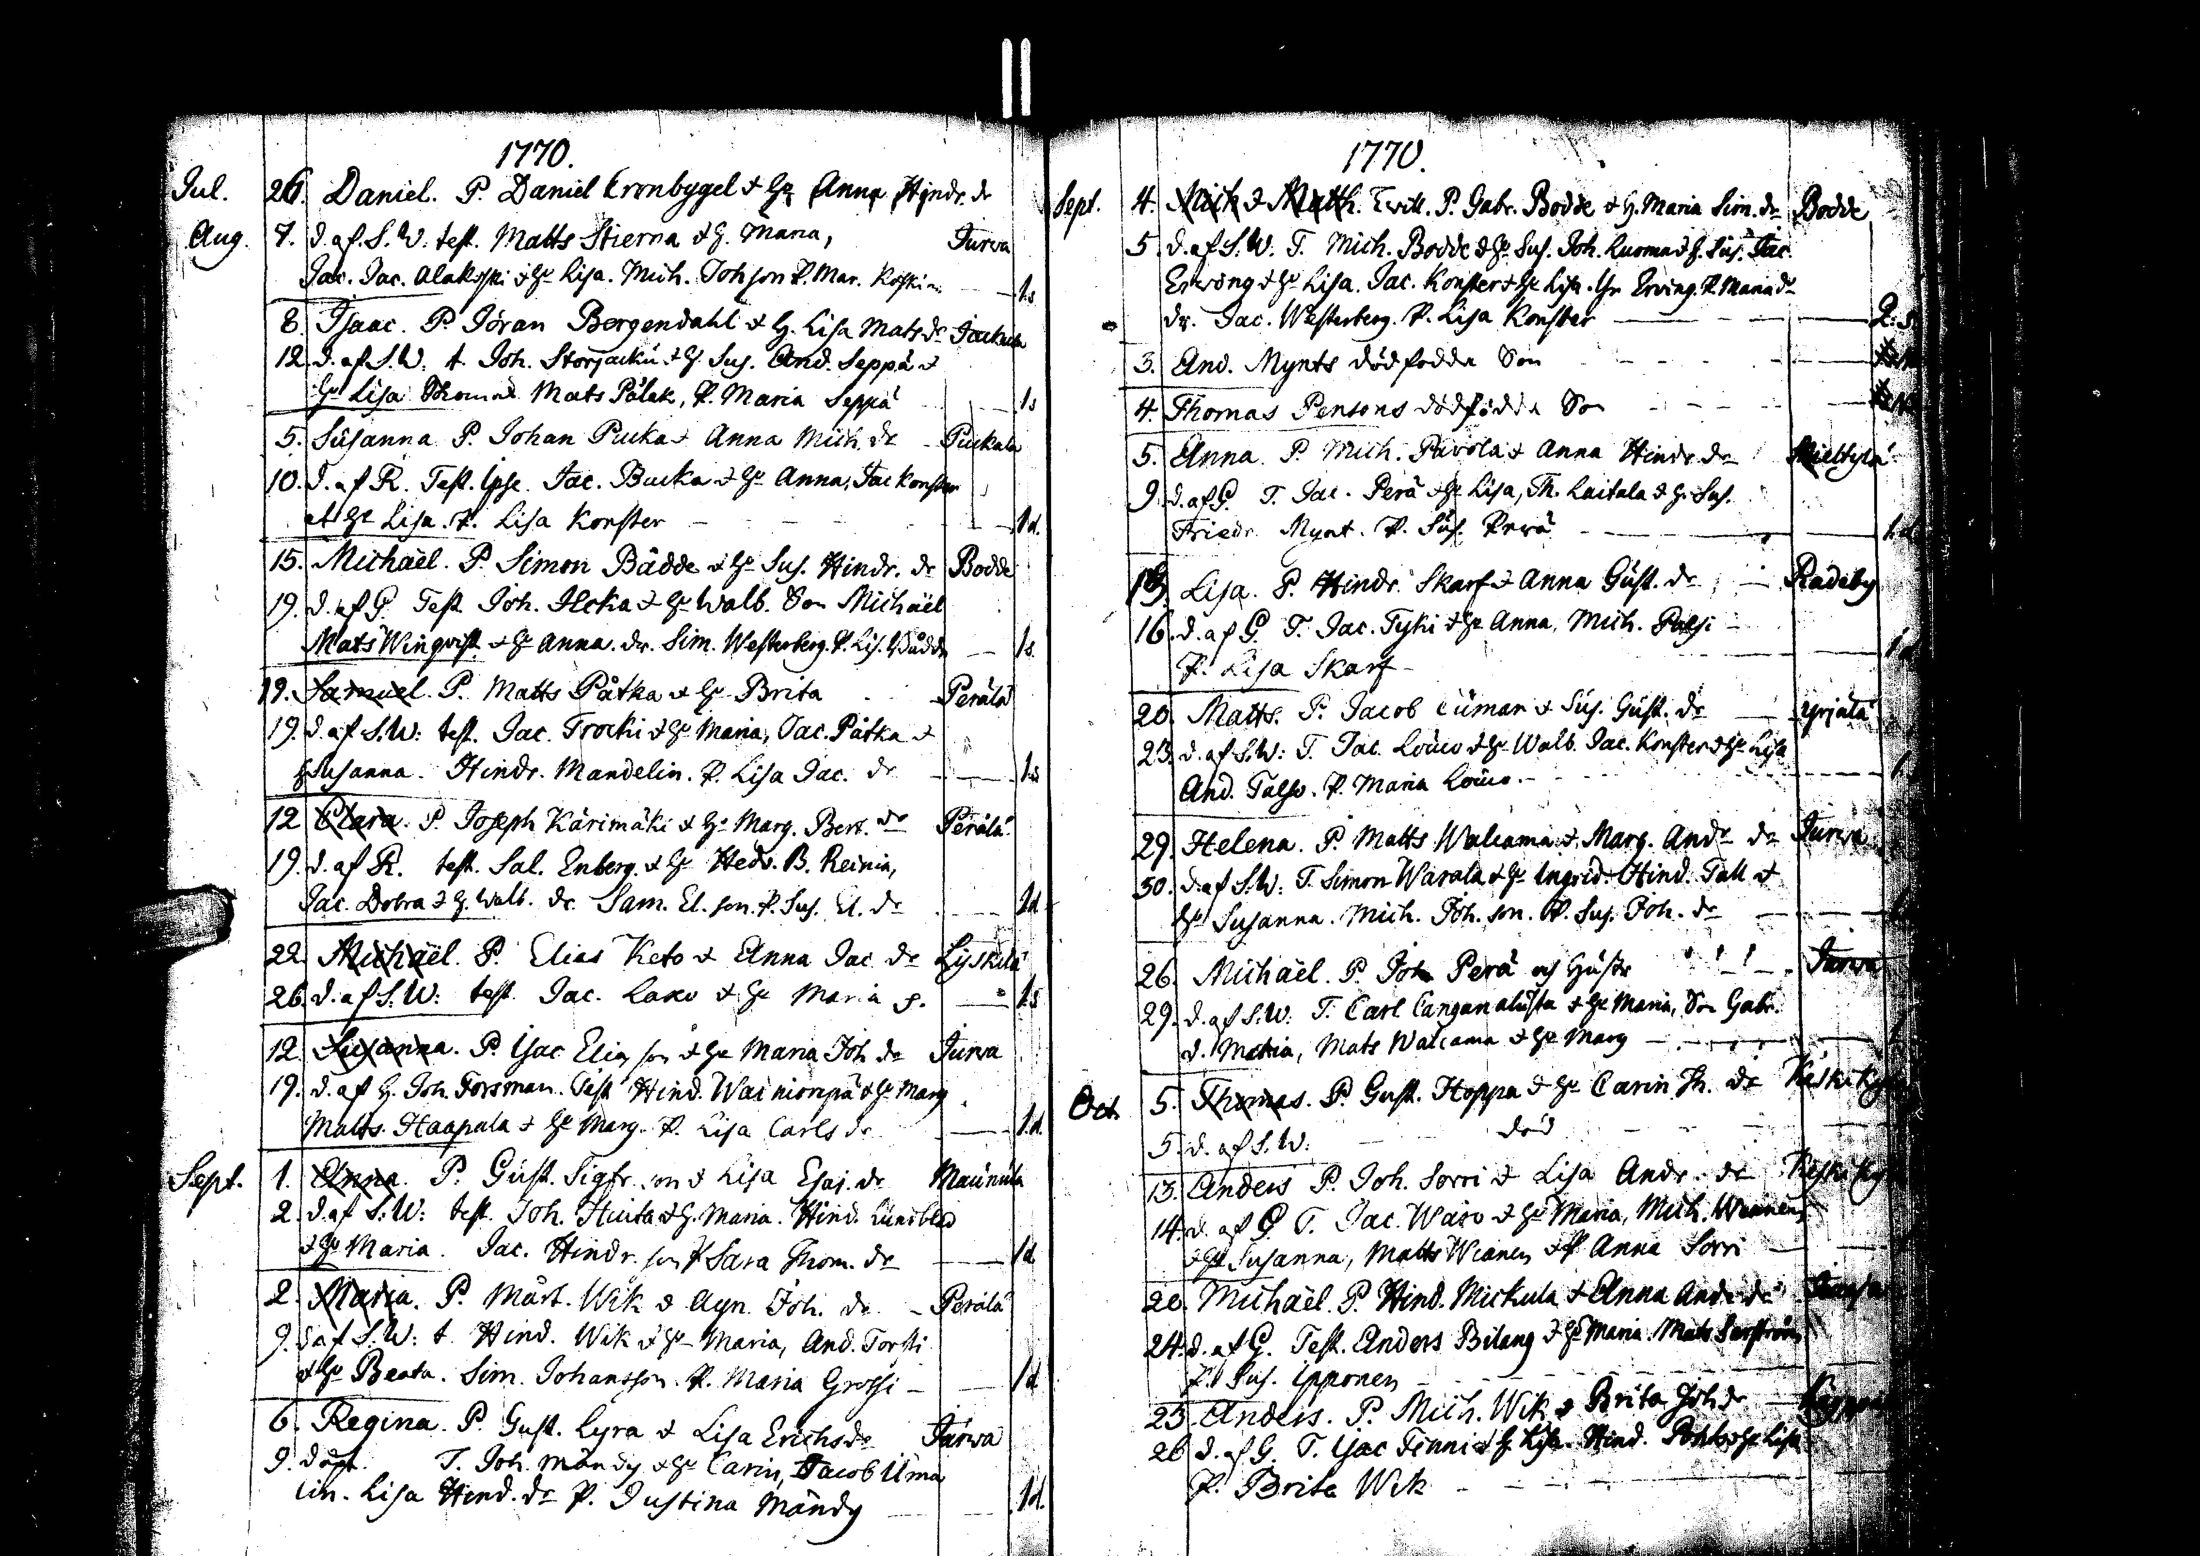 1770.
Jul. 26. Daniel. P. Daniel Kronbygel & Hu Anna Hindr. dr
Aug. 7. d. af. S. W. test. Matts Stierna & H. Maria, Turva
Jac. Jac. Alakoski & Hu Lisa. Mich. Johson P. Mar. Koski 1.s
8. Isaac. P. Jöran Bergendahl & H. Lisa Mats dr Jackula
12. d. af. S. W. t. Joh. Storjacku & H. Sus. And. Seppä &
Hu Lisa Mats Pålak, P. Maria Seppä 1s
5. Susanna P. Johan Pucka & Anna Mich. dr Puckala
10. d. af R. Test. Ipse. Jac. Bucka & Hu Anna, Jac Konster
et Hu Lisa. P. Lisa Konster 1d.
15. Michaël. P. Simon Bådde & Hu Sus. Hindr. dr Bodde
19. d. af G. Test. Joh. Ilcka & Hu Walb. Son Michaël
Mats Winqvist & Hu Anna. dr. Sim. Westerberg. P. Lis. Bådde 1s.
19. Samuel. P. Matts Påtka & Hu Brita Perälä
19. d. af S. W: test. Jac. Trocki & Hu Maria, Jac. Påtka &
Susanna. Hindr. Mandelin. P. Lisa Jac. dr 1.s
12. Clara. P. Joseph Kärimäki & Hu Marg. Bert. dr Perälä
19. d. af R. test. Sal. Enberg. & Hu Hedv. B. Reinia,
Jac. Dobra & H. Walb. dr. Sam. El. son. P. Sus. El. dr 1d
22. Michaël. P. Elias Keto & Anna Jac dr Lyskilä
26. d. af S. W: test. Jac. Lako & Hu Maria s. 1.s
12. Susanna. P. Isac Elias son & Hu Maria Joh dr Turva
19. d. af H. Joh. Forsman. Test Hind. Wainionpä & Hu Marg
Matts. Haapala & Hu Marg. P. Lisa Carls dr 1.d.
Sept. 1. Anna. P. Gust. Sigfr. son & Lisa Esai. dr Maunula
2. d. af S. W: test. Joh. Huita & H. Maria. Hind. Lundblad
& Hu Maria. Jac. Hindr. son P. Sara Thom. dr 1d
2. Maria. P. Mårt. Wik & Agn. Joh. dr Perälä
9. d. af S. W: t. Hind. Wik & Hu Maria, And. Torsti
& Hu Beata. Sim. Johansson. P. Maria Grossi 1d
6. Regina. P. Gust. Lyra & Lisa Erichs dr Turva
9. döpt. T. Joh. Mändy & Hu Carin, Jacob Uma
Lisa Hind. dr P. Justina Mändy 1d.
1770.
Sept. 4. Mich & Matth. Twill. P. Gabr. Bodde & H. Maria Sim. dr Bodde
5. d. af. S. W. T. Mich. Bodde & Hu Sus. Joh. Luoma & H. Sus. Jac.
Erving & Hu Lisa. Jac. Konster & Hu Lisa. Erving. P. Maria dr
dr. Jac. Westerberg. P. Lisa Konster 2. s.
3. And. Mynts dödfödda Son
4. Thomas Pensons dödfödda Son
5. Anna. P. Mich. Pavola & Anna Hindr. dr
9. d. af G. T. Jac. Perä & Hu Lisa, Th. Laitala & H. Sus.
Friedr. Mynt. P. Sus. Perä 1.d
13. Lisa. P. Hindr. Skarf & Anna Gust. dr Radeby
16. d. af G. T. Jac. Tyki & Hu Anna, Mich. Palsi
P. Lisa Skarf
20. Matts. P. Jacob Cuman & Sus. Gust. dr Yrjälä
23. d. af S. W: T. Jac. Louco & Hu Walb. Jac. Konster & Hu Lisa
And. Talso. P. Maria Louco.
29. Helena. P. Matts Walcama & Marg. And. dr Turva
30. d. af S. W: T. Simon Warala & Hu Ingrid. Hind. Tall &
Hu Susanna. Mich. Joh. son. P. Sus. Joh. dr
26. Michaël. P. Joh Perä och Hustr Turva
29. d. af S. W: T. Carl Canganalusta & Hu Maria, Son Gabr.
d. Maria, Mats Walcama & Hu Marg
Oct. 5. Thomas. P. Gust. Hoppa & Hu Carin Th. dr Keskikylä
5. d. af S. W: död
13. Anders P. Joh. Sorri & Lisa Andr. dr Keskiky
14. d. af G. T. Jac. Waro & Hu Maria, Mich.
& Hu Susanna, Matts Wianen & P. Anna Sorri
20. Michaël. P. Hind. Mickula & Anna And. dr
24. d. af G. Test. Anders Bilang & Hu Maria. Mats
P. Sus. Ipponen
25. Anders. P. Mich. Wik & Brita Joh dr
26 d. af G. T. Isac Finni & H. Lisa. Hind. & Hu Lisa
P. Brita Wik